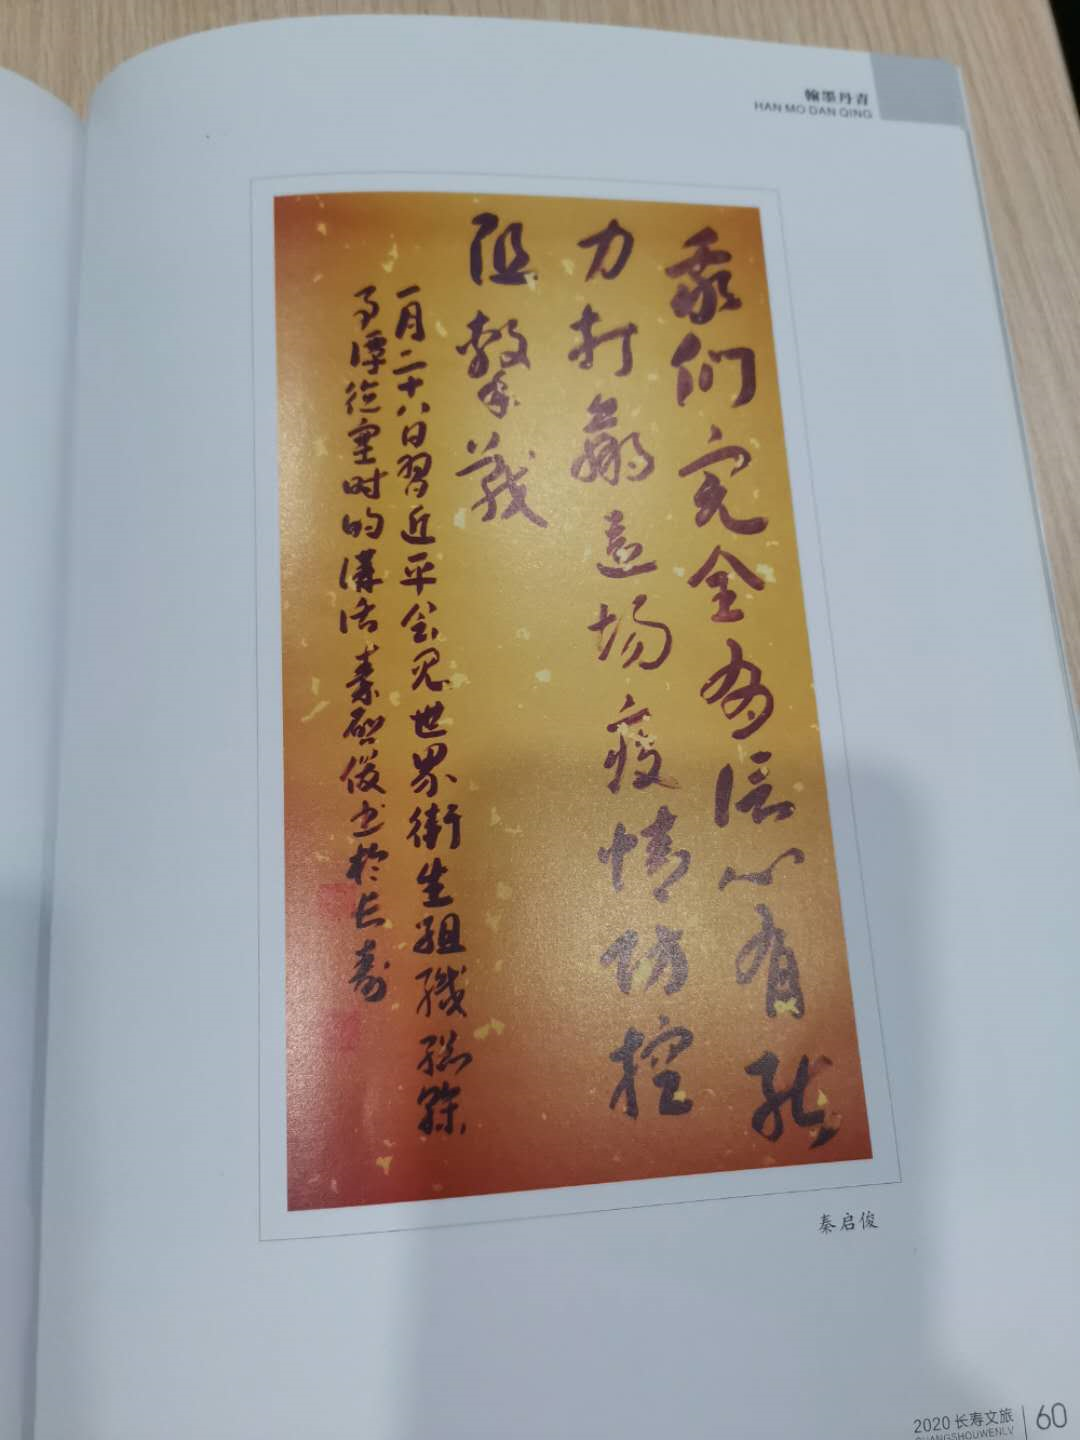 翰墨丹青
HAN MO DAN QING
我们完全有信心有能
力打赢这场疫情防控
阻擊战
一月二十八日習近平会见世界衛生组織總幹
事谭德塞时的講话 秦启俊书於长寿
秦启俊
2020 长寿文旅 60
CHANGSHOUWENLV